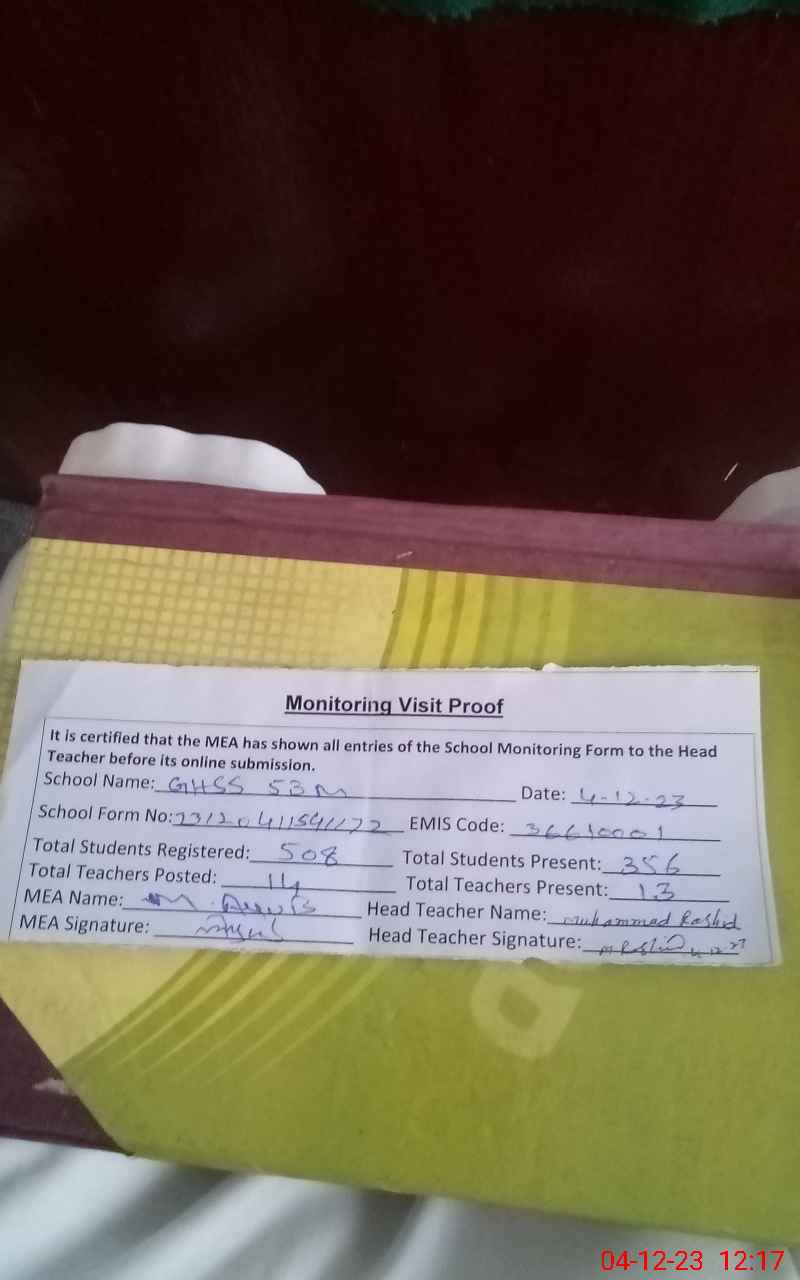 Monitoring Visit Proof
It is certified that the MEA has shown all entries of the School Monitoring Form to the Head
Teacher before its online submission.
School Name: GHSS 53 M Date: 4-12-23
School Form No: EMIS Code: 36610001
Total Students Registered: 508 Total Students Present: 356
Total Teachers Posted: 14 Total Teachers Present: 13
MEA Name: M. Head Teacher Name: Muhammad Rashid
MEA Signature: Head Teacher Signature:
04-12-23 12:17